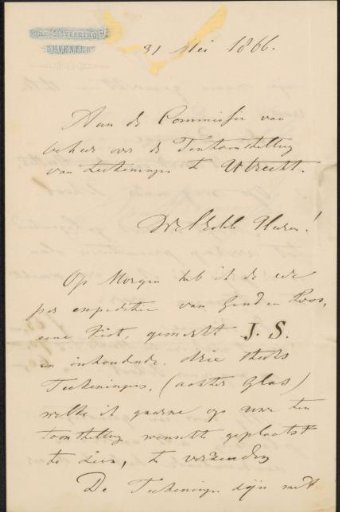 DEVENTER
31 Mei 1866.
Aan de Commissie van
beheer over de Tentoonstelling
van teekeningen te Utrecht.
WelEdele Heeren!
Op Morgen heb ik de eer
per expeditie van
eene Kist, gemerkt J.S.
en inhoudende drie stuks
Teekeningen, (achter Glas)
welke ik gaarne op uwe ten
toonstelling wensch geplaatst
te zien, te verzenden
De Teekeningen zijn met